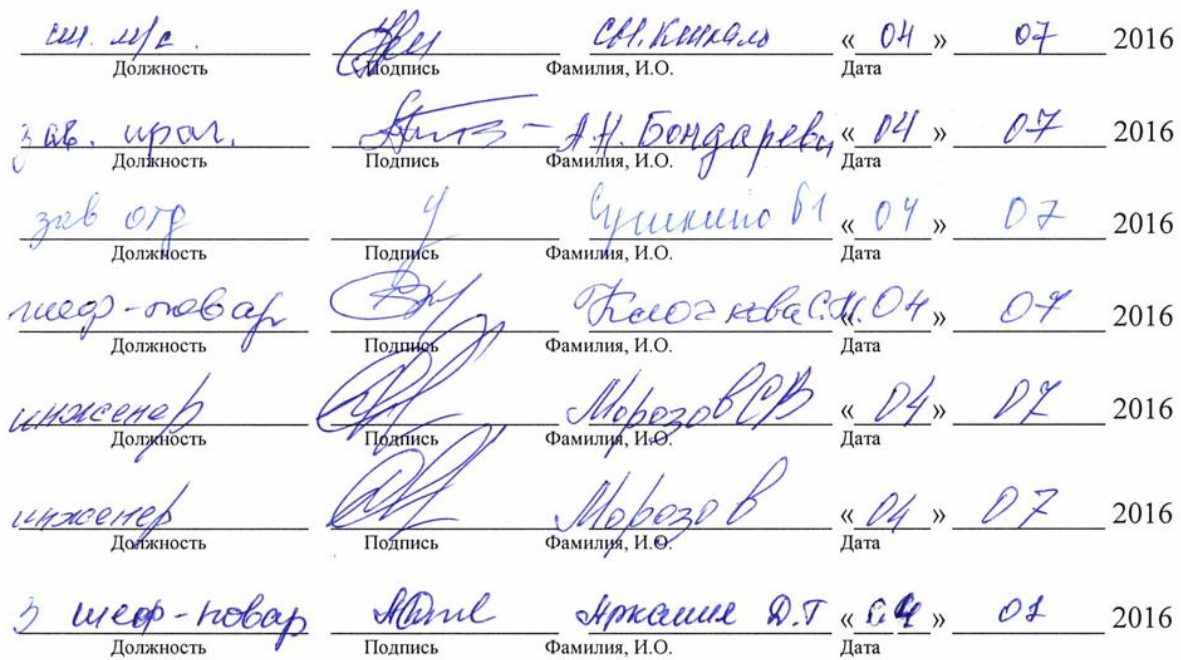 ст. м/с. С.Н. « 04 » 07 2016
Должность Подпись Фамилия, И.О. Дата
зав. прач. А.Н. Бондарева « 04 » 07 2016
Должность Подпись Фамилия, И.О. Дата
зав отд « 04 » 07 2016
Должность Подпись Фамилия, И.О. Дата
шеф-повар Клочкова С.Н. 04 07 2016
Должность Подпись Фамилия, И.О. Дата
инженер Морозов СВ « 04 » 07 2016
Должность Подпись Фамилия, И.О. Дата
инженер Морозов « 04 » 07 2016
Должность Подпись Фамилия, И.О. Дата
шеф-повар Д.Т « 04 » 07 2016
Должность Подпись Фамилия, И.О. Дата